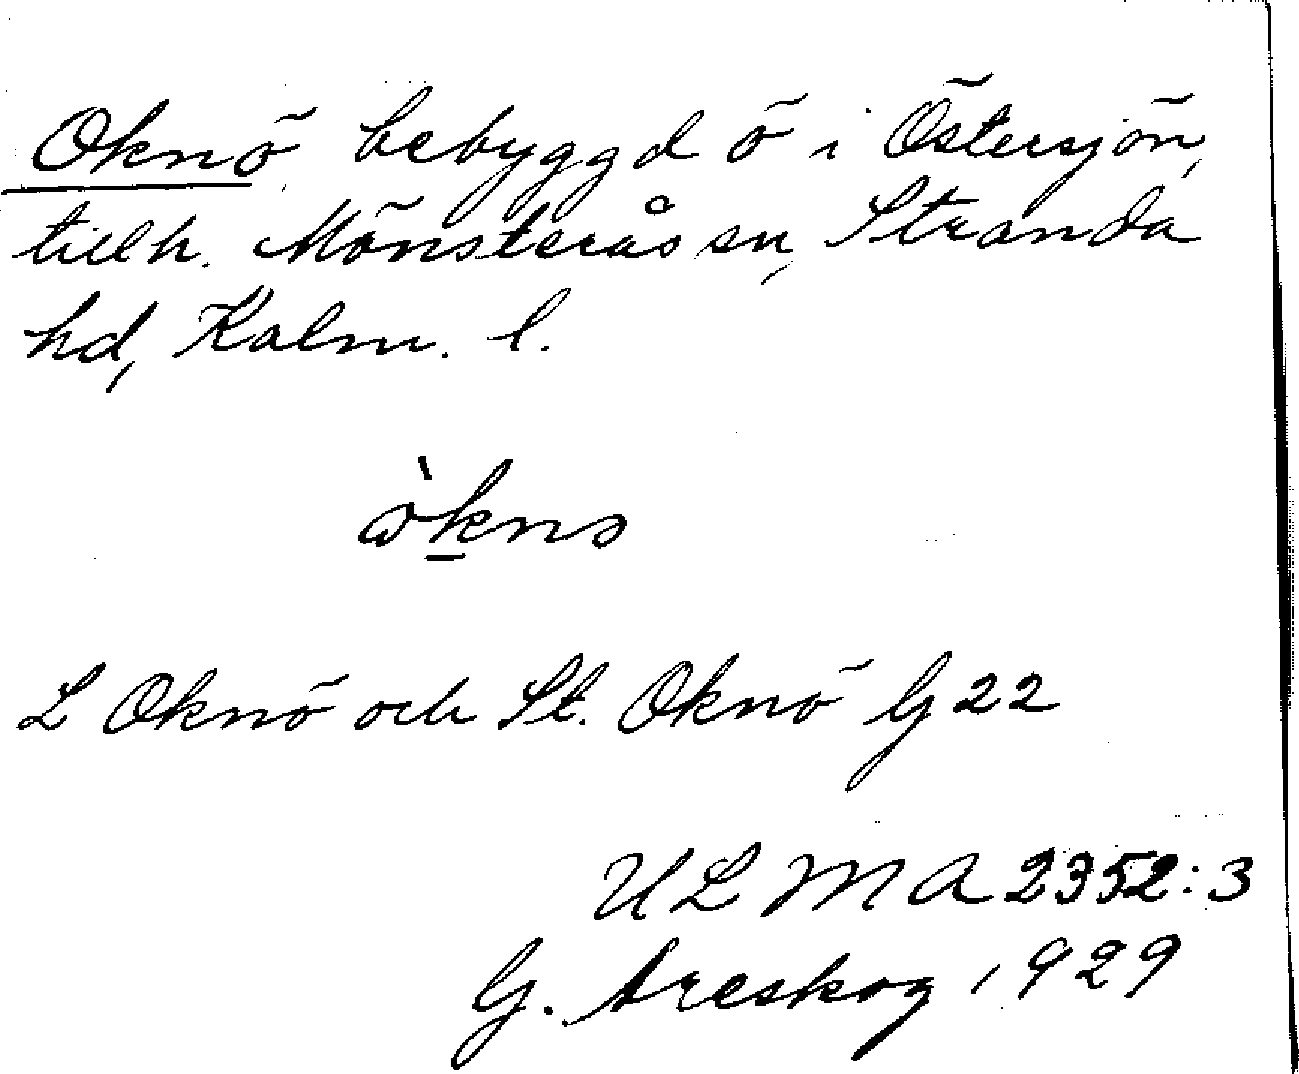 Oknö bebyggd ö i Östersjön,
tillh. Mönsterås sn, Stranda
hd, Kalm. l.
L Oknö och St. Oknö G 22
ULMA 2352:3
G. Areskog 1929